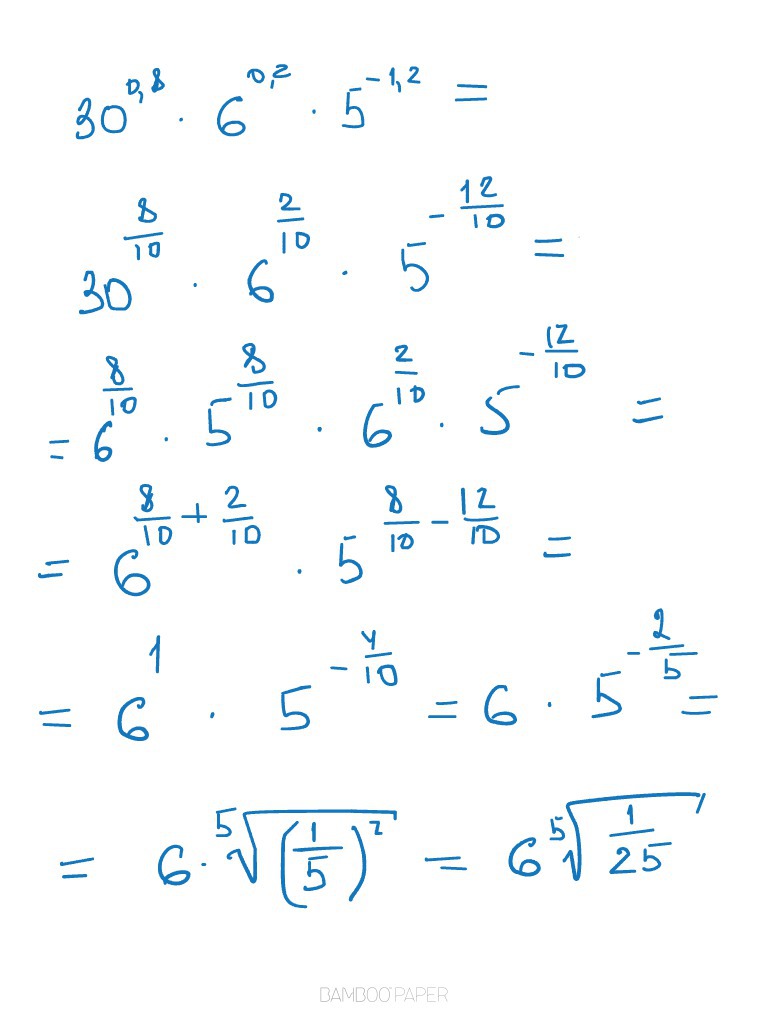 30^{0,8} · 6^{0,2} · 5^{-1,2} =
30^{\frac{8}{10}} · 6^{\frac{2}{10}} · 5^{-\frac{12}{10}} =
= 6^{\frac{8}{10}} · 5^{\frac{8}{10}} · 6^{\frac{2}{10}} · 5^{-\frac{12}{10}} =
= 6^{\frac{8}{10}+\frac{2}{10}} · 5^{\frac{8}{10}-\frac{12}{10}} =
= 6^{1} · 5^{-\frac{4}{10}} = 6 · 5^{-\frac{2}{5}} =
= 6 · \sqrt[5]{(\frac{1}{5})^{2}} = 6 \sqrt[5]{\frac{1}{25}}
BAMBOO PAPER